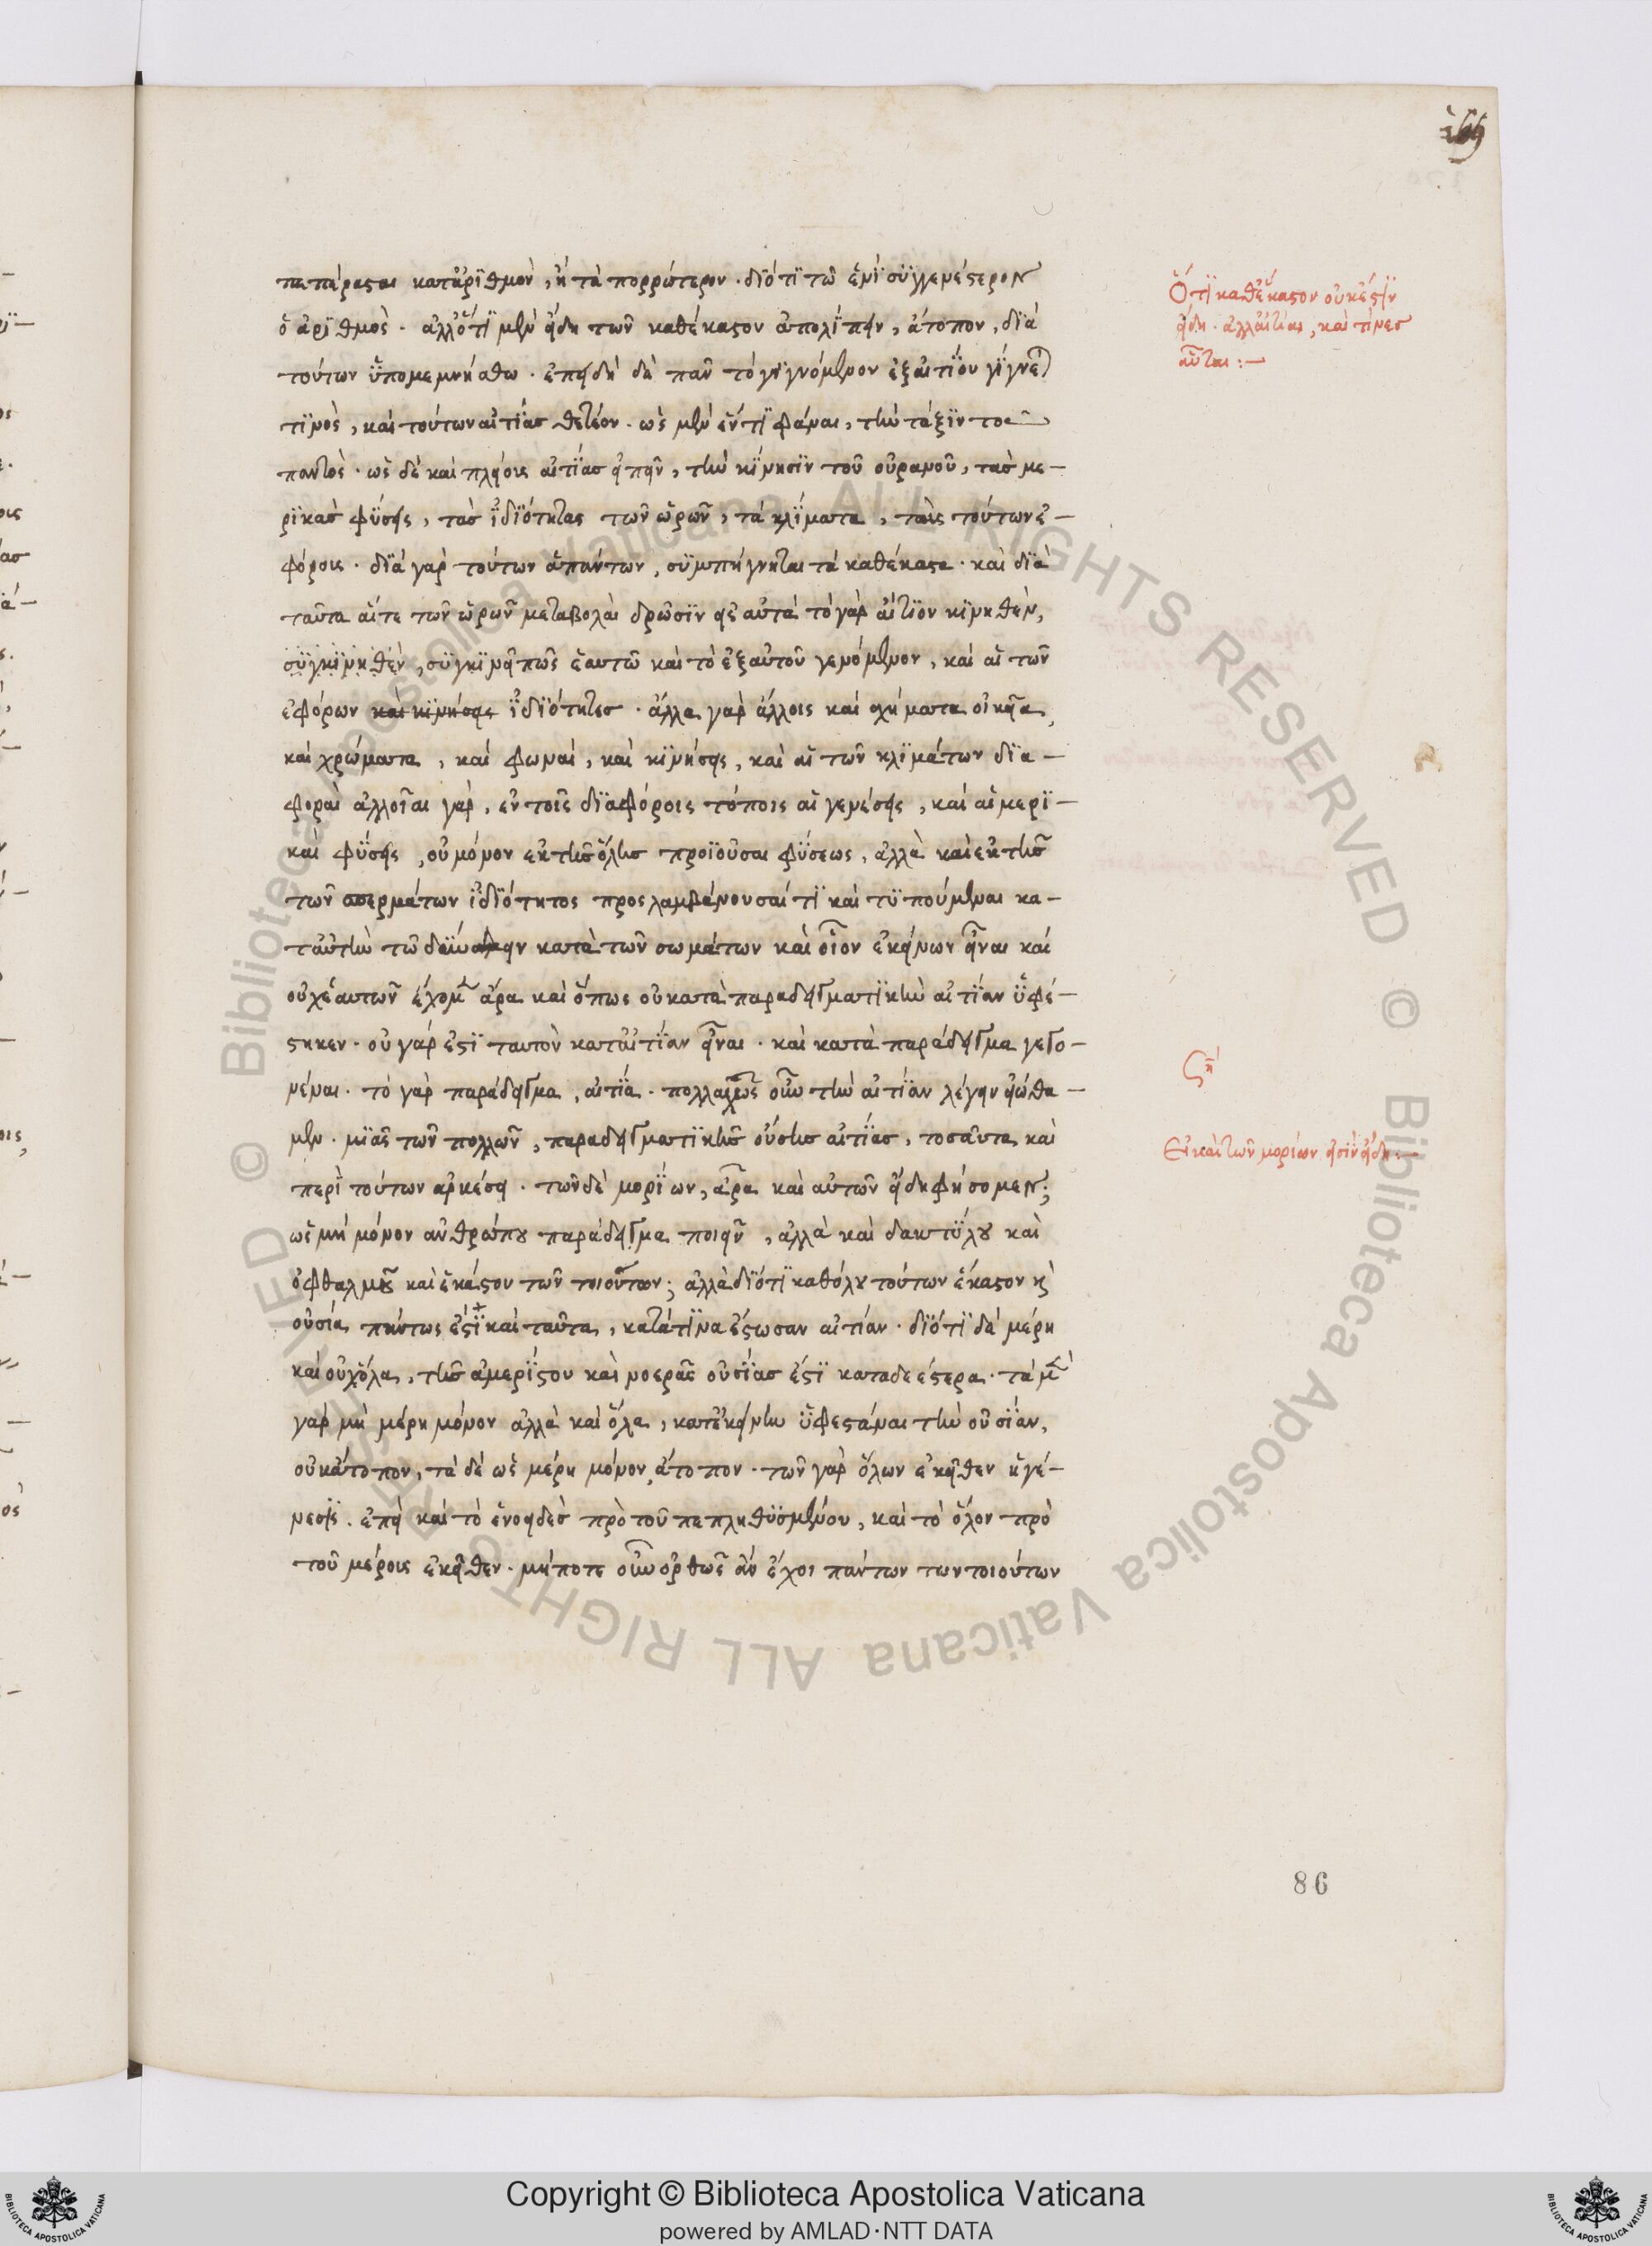 169
πεπέρασται κατ' ἀριθμὸν, ἢ τὰ πορρώτερον. διότι τῶ ἑνὶ συγγενέστερον
ὁ ἀριθμός. ἀλλ' ὅτι μὲν εἴδη τῶν καθέκαστον ἀπολιπεῖν, ἄτοπον, διὰ
τούτων ὑπομεμνήσθω. ἐπειδὴ δὲ πᾶν τὸ γιγνόμενον ἐξ αἰτίου γίγνεται
τινὸς, καὶ τούτων αἰτίας θετέον. ὡς μὲν ἕν τι φάναι, τὴν τάξιν τοῦ
παντός. ὡς δὲ καὶ πλείους αἰτίας εἰπεῖν, τὴν κίνησιν τοῦ οὐρανοῦ, τὰς με-
ρικὰς φύσεις, τὰς ἰδιότητας τῶν ὡρῶν, τὰ κλίματα, τοὺς τούτων ἐ-
φόρους. διὰ γὰρ τούτων ἁπάντων, συμπήγνυται τὰ καθέκαστα. καὶ διὰ
ταῦτα αἵτε τῶν ὡρῶν μεταβολαὶ δρῶσιν εἰς αὐτὰ τὸ γὰρ αἴτιον κινηθὲν,
συγκινηθὲν, συγκινεῖ πῶς ἑαυτῶ καὶ τὸ ἐξ αὐτοῦ γενόμενον, καὶ αἱ τῶν
ἐφόρων καὶ κινήσεις ἰδιότητες. ἄλλα γὰρ ἄλλοις καὶ σχήματα οἰκεῖα
καὶ χρώματα, καὶ φωναὶ, καὶ κινήσεις, καὶ αἱ τῶν κλιμάτων δια-
φοραὶ ἀλλοῖαι γὰρ, ἐν τοῖς διαφόροις τόποις αἱ γενέσεις, καὶ αἱ μερι-
καὶ φύσεις, οὐ μόνον ἐκ τῆς ὅλης προϊοῦσαι φύσεως, ἀλλὰ καὶ ἐκ τῆς
τῶν σπερμάτων ἰδιότητος προσλαμβάνουσαί τι καὶ τυπούμεναι κα-
τ' αὐτὴν τῶ κατὰ τῶν σωμάτων καὶ οἷον ἐκείνων εἶναι καὶ
οὐχ ἑαυτῶν ἔχομεν ἄρα καὶ ὅπως οὐ κατὰ παραδειγματικὴν αἰτίαν ὑφέ-
στηκεν. οὐ γάρ ἐστι ταυτὸν κατ' αἰτίαν εἶναι. καὶ κατὰ παράδειγμα γεγο-
νέναι. τὸ γὰρ παράδειγμα, αἰτία. πολλαχῶς οὖν τὴν αἰτίαν λέγειν εἰώθα-
μεν. μιᾶς τῶν πολλῶν, παραδειγματικῆς οὔσης αἰτίας, τοσαῦτα καὶ
περὶ τούτων ἀρκέσει. τῶν δὲ μορίων, ἆρα καὶ αὐτῶν εἴδη φήσομεν;
ὡς μὴ μόνον ἀνθρώπου παράδειγμα ποιεῖν, ἀλλὰ καὶ δακτύλου καὶ
ὀφθαλμοῦ καὶ ἑκάστου τῶν τοιούτων; ἀλλὰ διότι καθόλου τούτων ἕκαστον καὶ
οὐσία πάντως ἐστὶ καὶ ταῦτα, κατά τινα ἔστωσαν αἰτίαν. διότι δὲ μέρη
καὶ οὐχ ὅλα, τῆς ἀμερίστου καὶ νοερᾶς οὐσίας ἐστὶ καταδεέστερα. τὰ μὲν
γὰρ μὴ μέρη μόνον ἀλλὰ καὶ ὅλα, κατ' ἐκείνην ὑφεστάναι τὴν οὐσίαν,
οὐκ ἄτοπον, τὰ δὲ ὡς μέρη μόνον ἄτοπον. τῶν γὰρ ὅλων ἐκεῖθεν ἡ γέ-
νεσις. ἐπεὶ καὶ τὸ ἑνοειδὲς πρὸ τοῦ πεπληθυσμένου, καὶ τὸ ὅλον πρὸ
τοῦ μέρους ἐκεῖθεν. μήποτε οὖν ὀρθῶς ἂν ἔχοι πάντων τῶν τοιούτων
Ὅτι καθέκαστον οὐκ ἔστιν
εἴδη. ἀλλ' αἰτίαι, καὶ τίνες
αὗται:—
Εἰ καὶ τῶν μορίων εἰσὶν εἴδη:—
86
© Biblioteca Apostolica Vaticana ALL RIGHTS RESERVED © Biblioteca Apostolica Vaticana ALL RIGHTS RESERVED
Copyright © Biblioteca Apostolica Vaticana
powered by AMLAD·NTT DATA
BIBLIOTECA APOSTOLICA VATICANA
BIBLIOTECA APOSTOLICA VATICANA